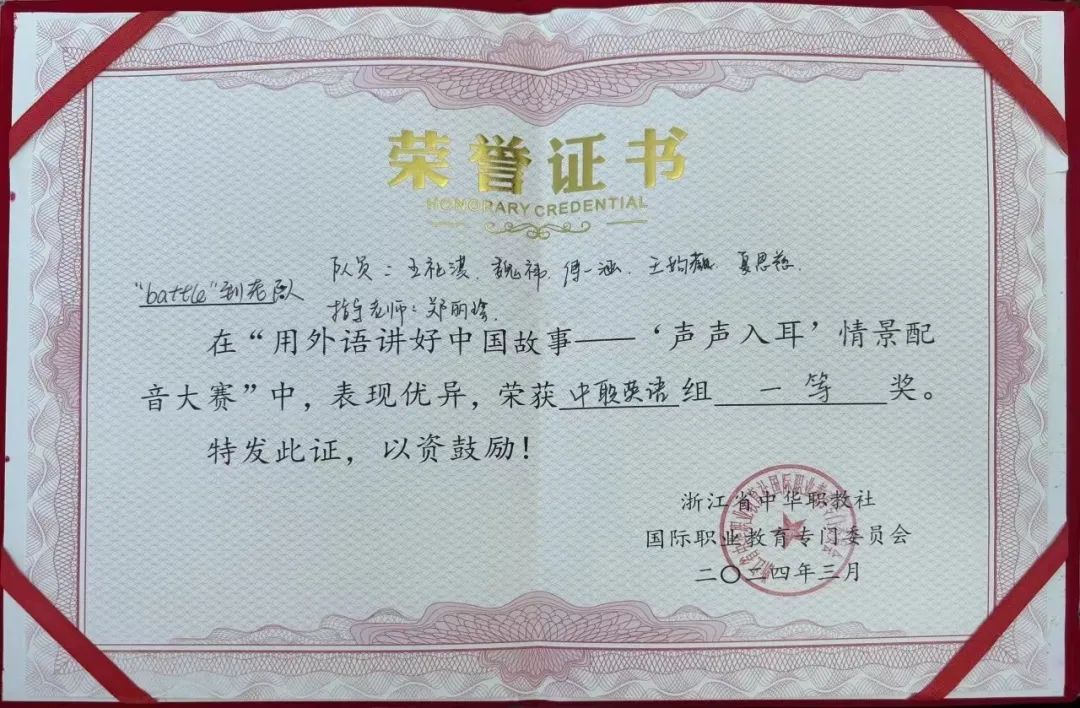 荣誉证书
HONORARY CREDENTIAL
队员：王礼淇、魏祎、傅一涵、王、夏思
"battle"到老队
指导老师：郑丽
在“用外语讲好中国故事——‘声声入耳’情景配
音大赛”中，表现优异，荣获中职英语组一等奖。
特发此证，以资鼓励！
浙江省中华职教社
国际职业教育专门委员会
二〇二四年三月